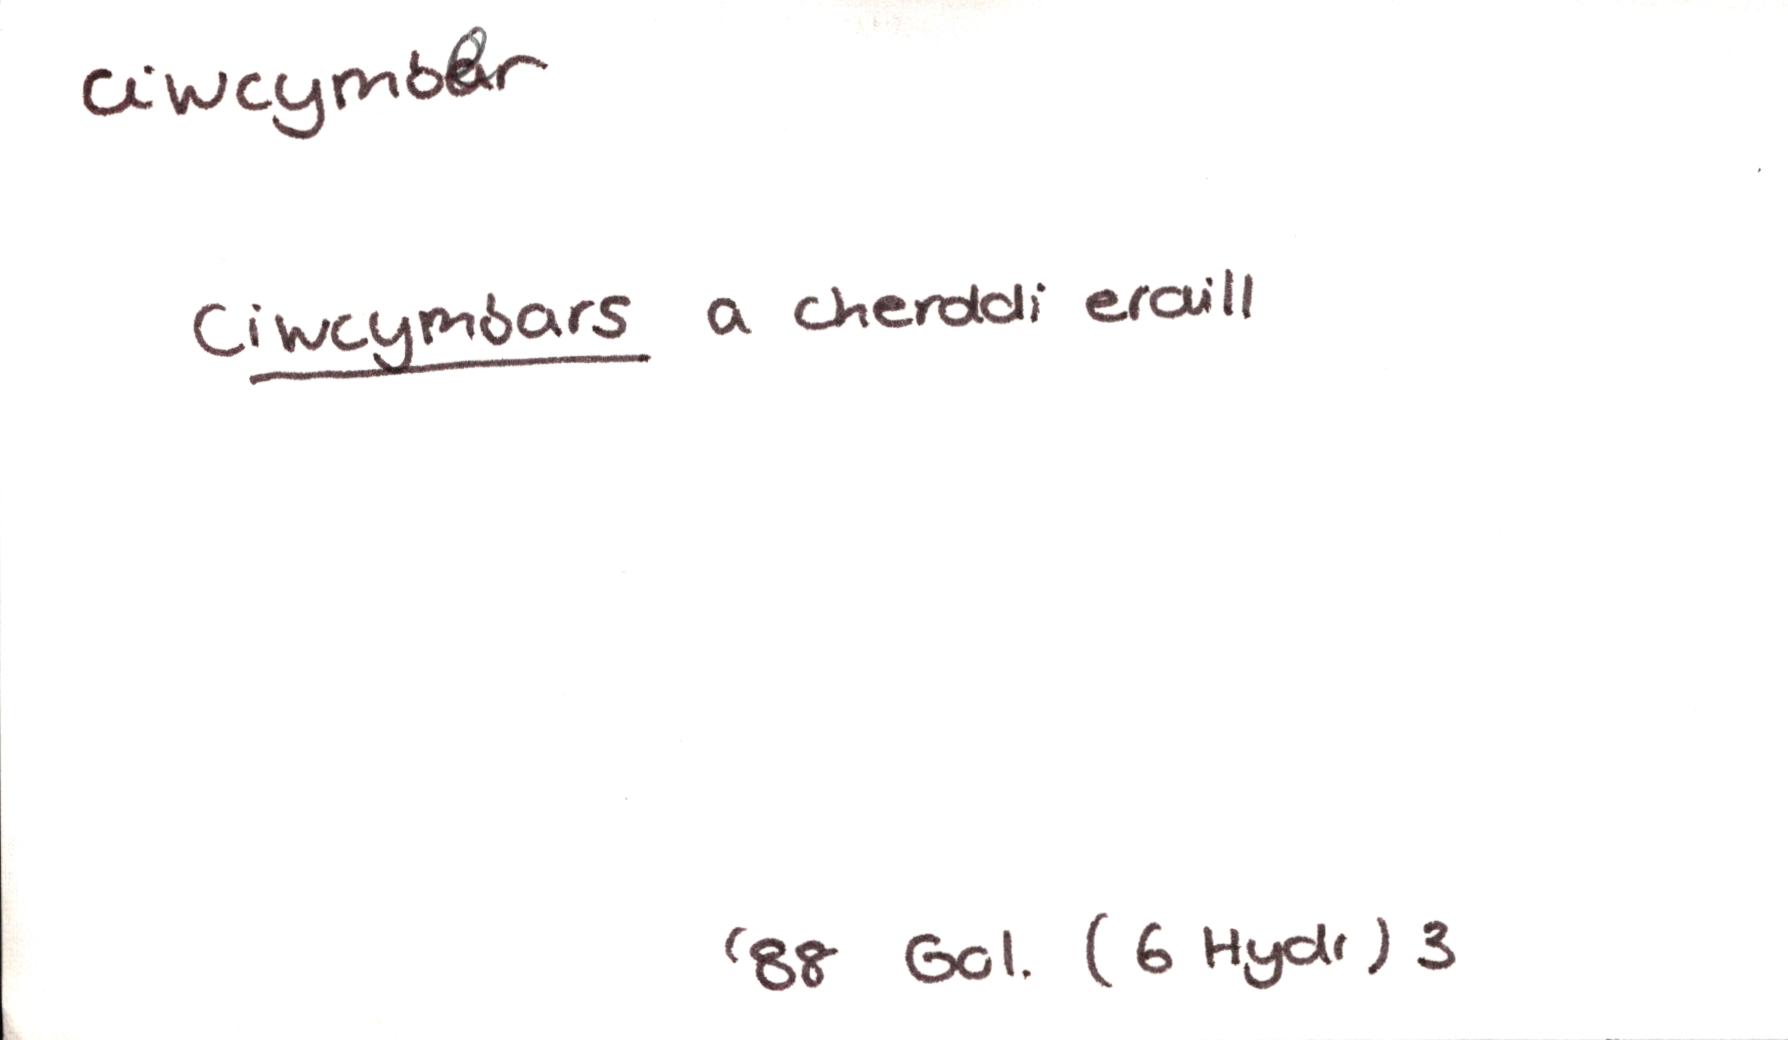 ciwcymber
Ciwcymbars a cherddi eraill
'88 Gol. (6 Hydr) 3